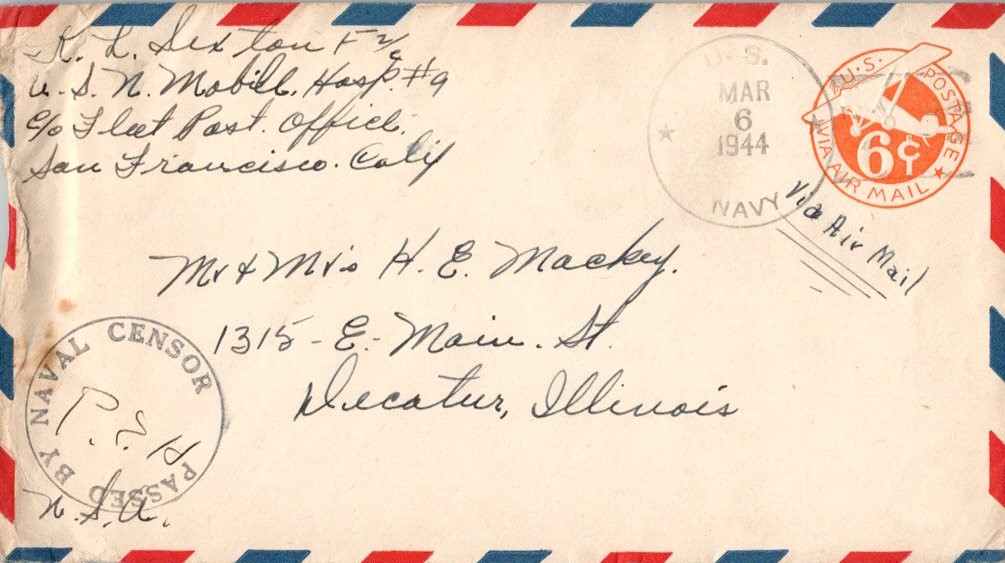 R. L. Sexton F 2/c
U. S. N. Mobile. Hosp. #9
c/o Fleet Post. Office.
San Francisco. Calif
U.S.
MAR
6
1944
NAVY
U.S. POSTAGE
6¢
VIA AIR MAIL
Via Air Mail
Mr & Mrs H. E. Mackey.
1315 - E. Main. St.
Decatur, Illinois
PASSED BY NAVAL CENSOR
P. E. H
U.S.A.